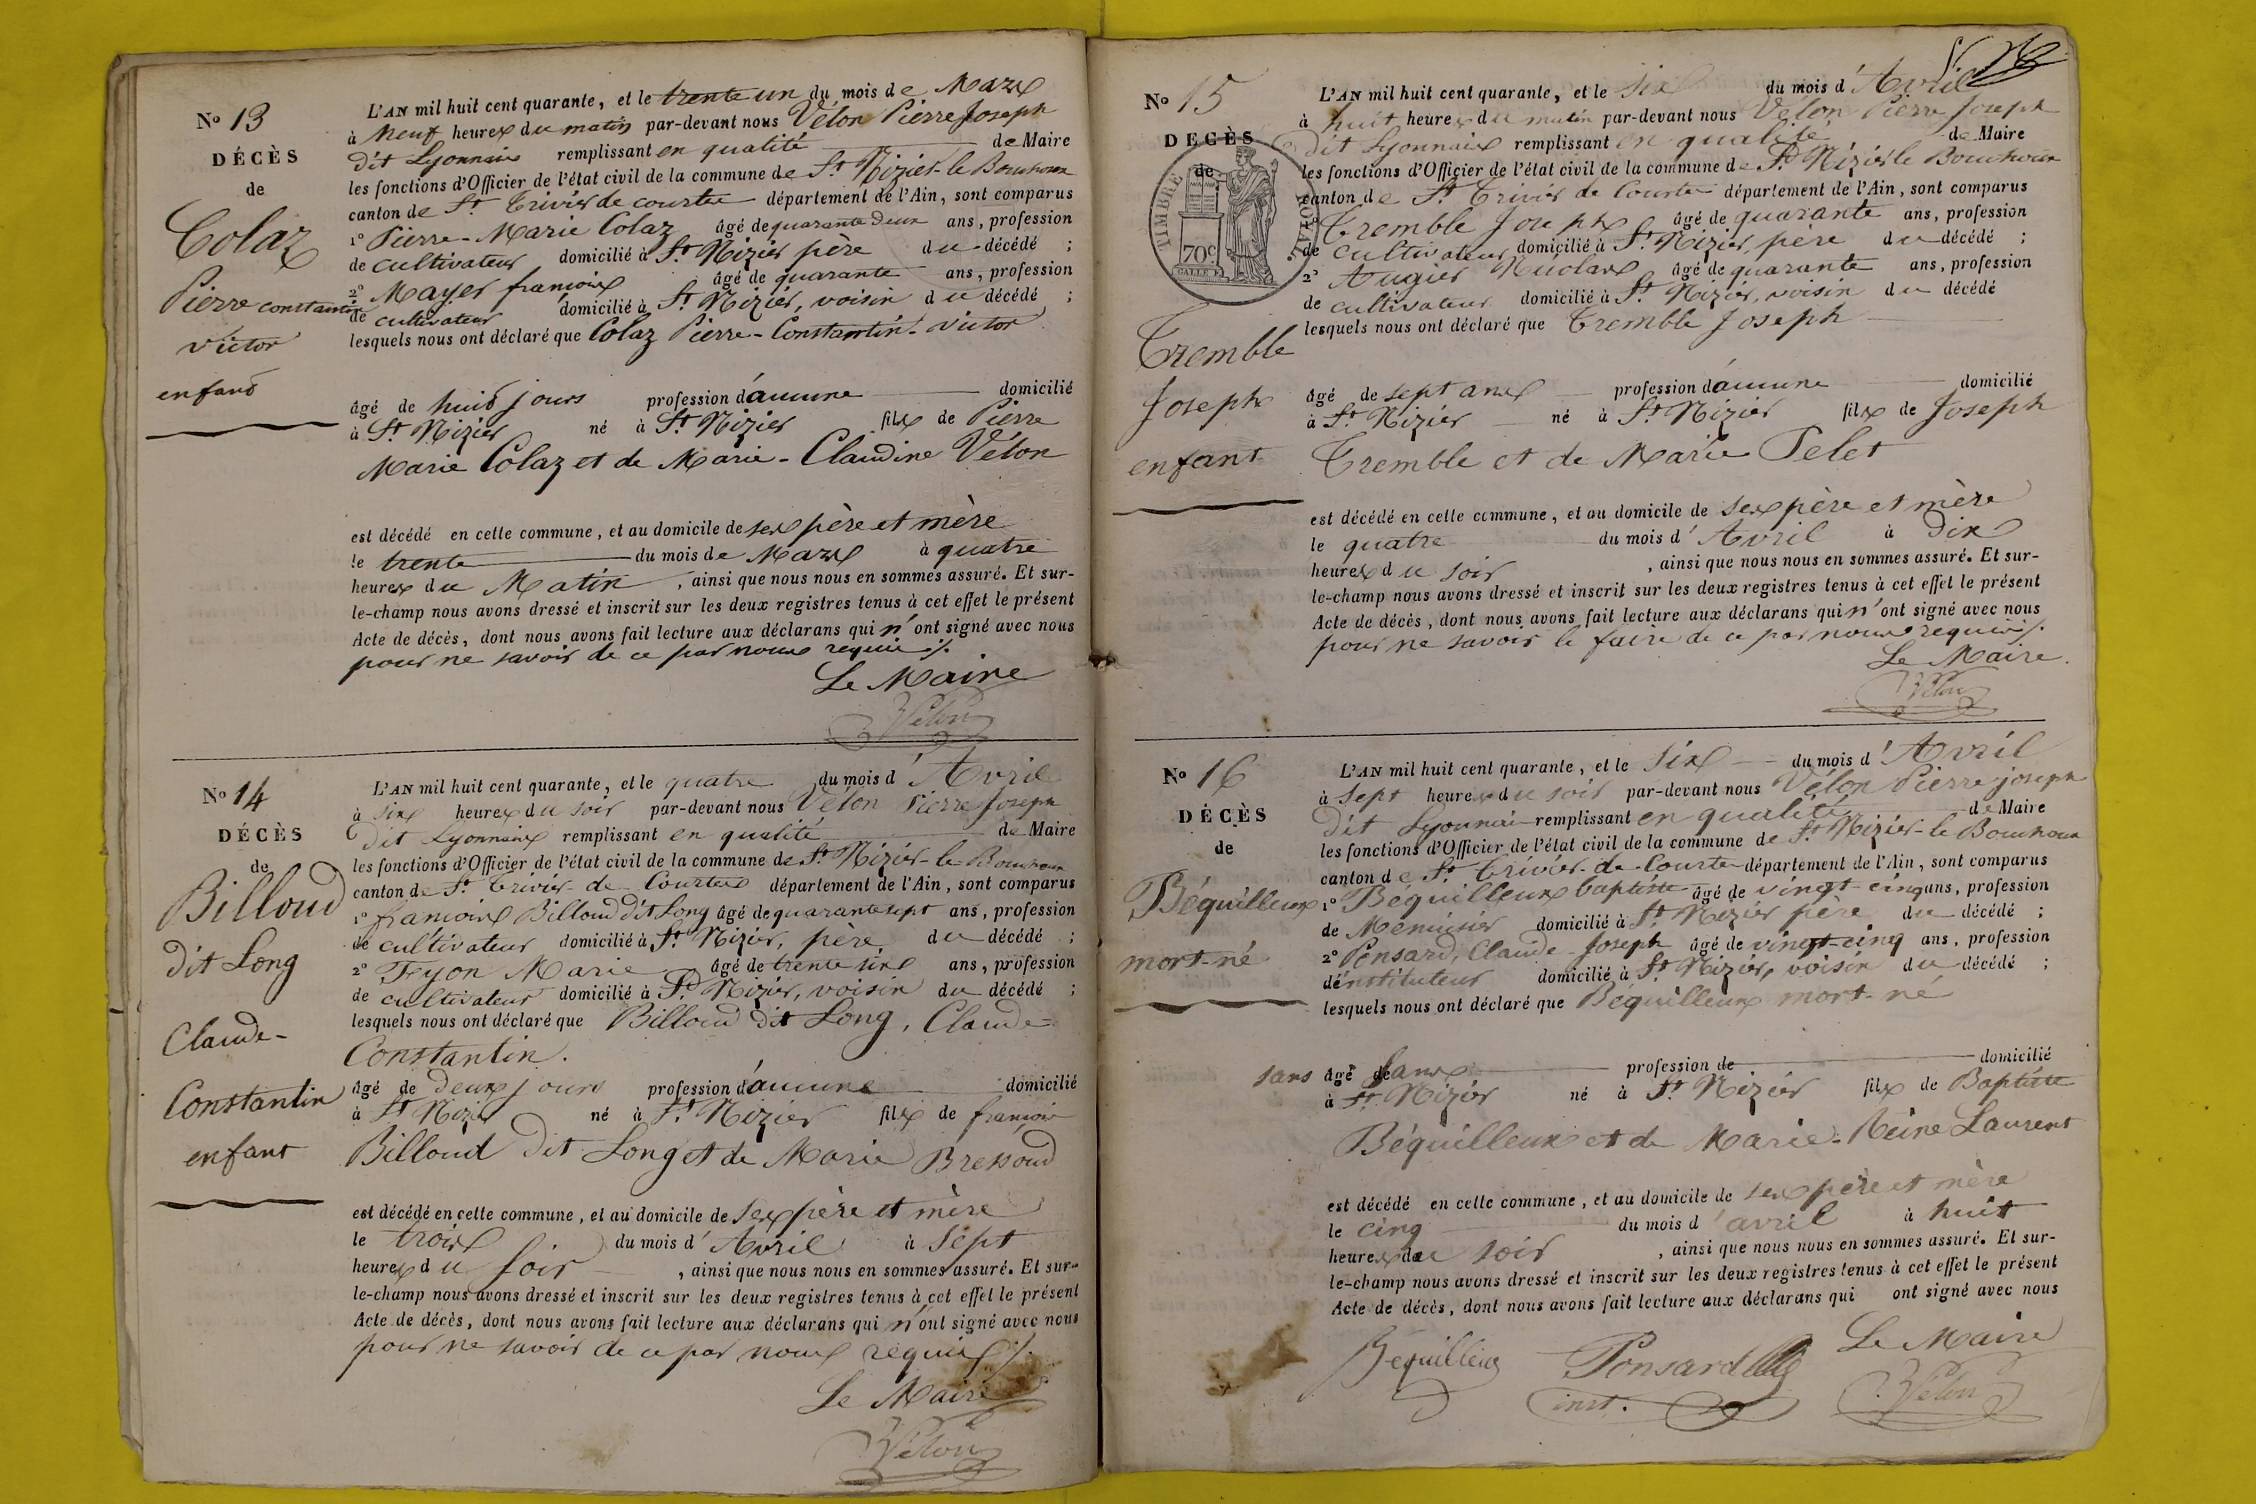 Nº 13
DÉCÈS
de
Colaz
Pierre constantin
victor
enfant
L'AN mil huit cent quarante, et le trente un du mois de Mars
à Neuf heures du matin par-devant nous Vélon Pierre Joseph
dit Lyonnais remplissant en qualité de Maire
les fonctions d'Officier de l'état civil de la commune de St Nizier-le Bouchoux
canton de St Trivier de courtes département de l'Ain, sont comparus
1º Pierre-Marie Colaz âgé de quarante deux ans, profession
de cultivateur domicilié à St Nizier père du décédé ;
2º Mayer françois âgé de quarante ans, profession
de cultivateur domicilié à St Nizier, voisin du décédé ;
lesquels nous ont déclaré que Colaz Pierre-Constantin-victor
âgé de huit jours profession d'aucune domicilié
à St Nizier né à St Nizier fils de Pierre
Marie Colaz et de Marie-Claudine Vélon
est décédé en cette commune, et au domicile de ses père et mère
le trente du mois de Mars à quatre
heures du Matin, ainsi que nous nous en sommes assuré. Et sur-
le-champ nous avons dressé et inscrit sur les deux registres tenus à cet effet le présent
Acte de décès, dont nous avons fait lecture aux déclarans qui n'ont signé avec nous
pour ne savoir de ce par nous requis ./.
Le Maire
Vélon
Nº 14
DÉCÈS
de
Billoud
dit Long
Claude-
Constantin
enfant
L'AN mil huit cent quarante, et le quatre du mois d'Avril
à six heures du soir par-devant nous Vélon Pierre Joseph
dit Lyonnais remplissant en qualité de Maire
les fonctions d'Officier de l'état civil de la commune de St Nizier-le-Bouchoux
canton de St Trivier-de Courtes département de l'Ain, sont comparus
1º françois Billoud dit Long âgé de quarante sept ans, profession
de cultivateur domicilié à St Nizier, père du décédé ;
2º Fyon Marie âgé de trente six ans, profession
de cultivateur domicilié à St Nizier, voisin du décédé ;
lesquels nous ont déclaré que Billoud dit Long, Claude-
Constantin.
âgé de deux jours profession d'aucune domicilié
à St Nizier né à St Nizier fils de françois
Billoud dit Long et de Marie Bressoud
est décédé en cette commune, et au domicile de ses père et mère
le trois du mois d'Avril à Sept
heures du soir, ainsi que nous nous en sommes assuré. Et sur-
le-champ nous avons dressé et inscrit sur les deux registres tenus à cet effet le présent
Acte de décès, dont nous avons fait lecture aux déclarans qui n'ont signé avec nous
pour ne savoir de ce par nous requis ./.
Le Maire
Vélon
Nº 15
DECÈS
de
TIMBRE
70c
Tremble
Joseph
enfant
L'AN mil huit cent quarante, et le six du mois d'Avril
à huit heures du matin par-devant nous Vélon Pierre Joseph
dit Lyonnais remplissant en qualité de Maire
les fonctions d'Officier de l'état civil de la commune de St Nizier le Bouchoux
canton de St Trivier de Courtes département de l'Ain, sont comparus
Tremble Joseph âgé de quarante ans, profession
de cultivateur domicilié à St Nizier, père du décédé ;
2º Augier Nicolas âgé de quarante ans, profession
de cultivateur domicilié à St Nizier, voisin du décédé
lesquels nous ont déclaré que Tremble Joseph
âgé de sept ans profession d'aucune domicilié
à St Nizier né à St Nizier fils de Joseph
Tremble et de Marie Pelet
est décédé en cette commune, et au domicile de ses père et mère
le quatre du mois d'Avril à dix
heures du soir, ainsi que nous nous en sommes assuré. Et sur-
le-champ nous avons dressé et inscrit sur les deux registres tenus à cet effet le présent
Acte de décès, dont nous avons fait lecture aux déclarans qui n'ont signé avec nous
pour ne savoir le faire de ce par nous requis ./.
Le Maire.
Vélon
Nº 16
DÉCÈS
de
Béquilleux
mort-né
L'AN mil huit cent quarante, et le Six du mois d'Avril
à Sept heures du soir par-devant nous Vélon Pierre-joseph
dit Lyonnais remplissant en qualité de Maire
les fonctions d'Officier de l'état civil de la commune de St Nizier-le Bouchoux
canton de St Trivier-de-Courtes département de l'Ain, sont comparus
1º Béquilleux baptiste âgé de vingt-cinq ans, profession
de Menuisier domicilié à St Nizier père du décédé ;
2º Ponsard, Claude Joseph âgé de vingt-cinq ans, profession
d'instituteur domicilié à St Nizier, voisin du décédé ;
lesquels nous ont déclaré que Béquilleux mort-né
sans âgé de sans profession de domicilié
à St Nizier né à St Nizier fils de Baptiste
Béquilleux et de Marie-Reine Laurent
est décédé en cette commune, et au domicile de ses père et mère
le cinq du mois d'avril à huit
heures du soir, ainsi que nous nous en sommes assuré. Et sur-
le-champ nous avons dressé et inscrit sur les deux registres tenus à cet effet le présent
Acte de décès, dont nous avons fait lecture aux déclarans qui ont signé avec nous
Le Maire
Béquilleux Ponsard Vélon
inst.